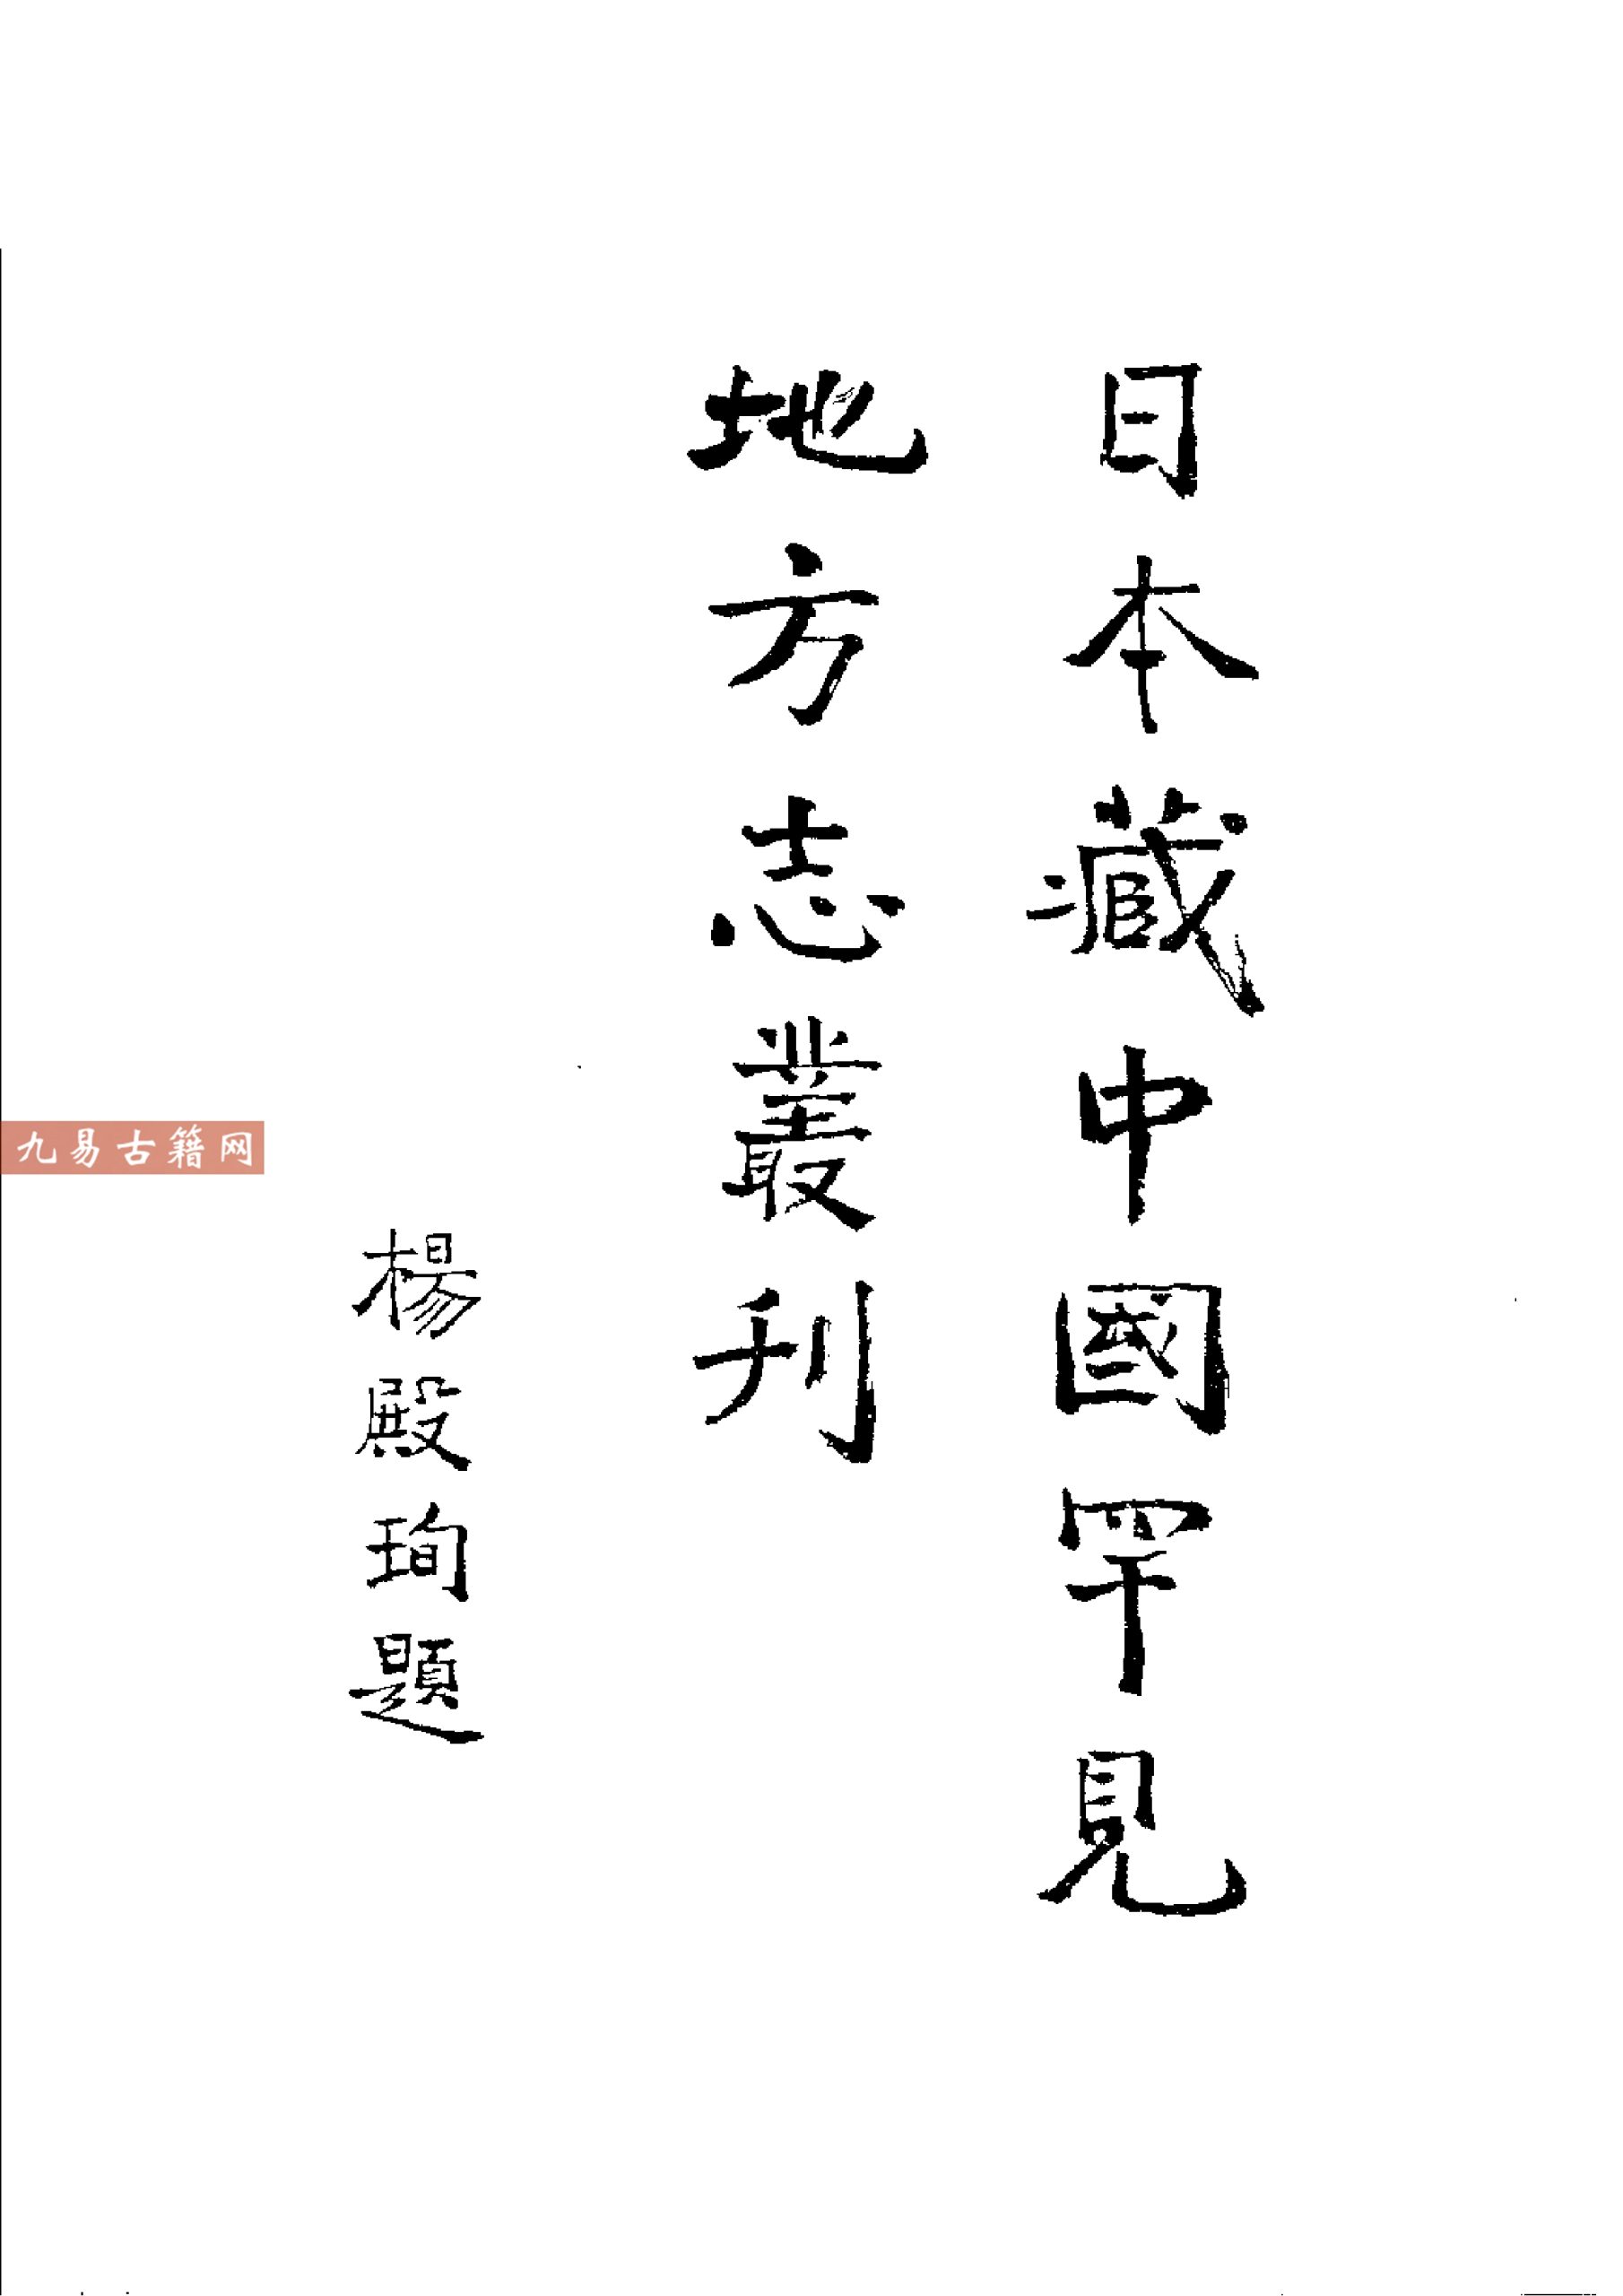 日本藏中國罕見
地方志叢刊
楊殿珣題
九易古籍网